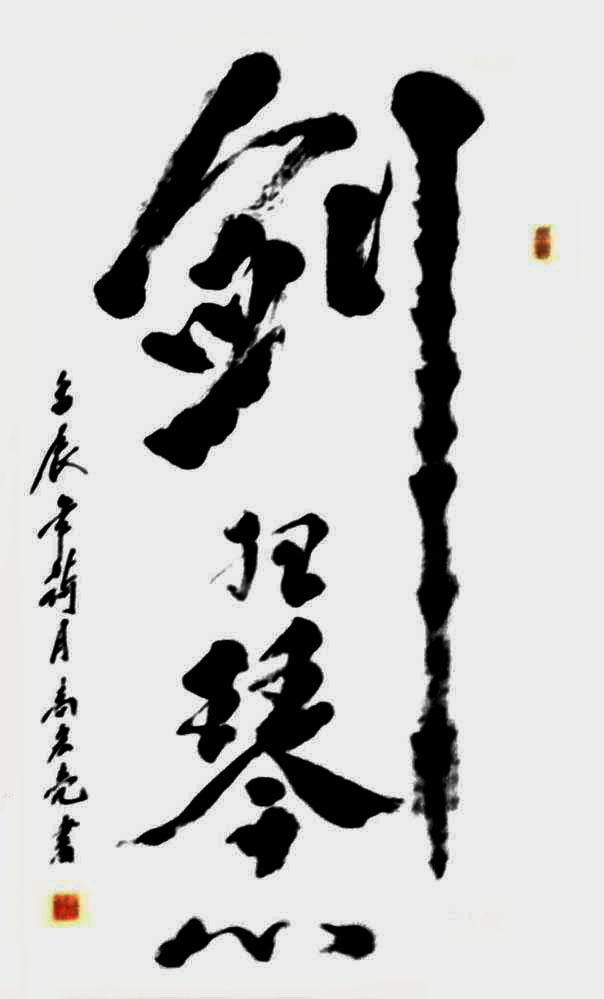 剑胆琴心
壬辰年荷月高宏亮書